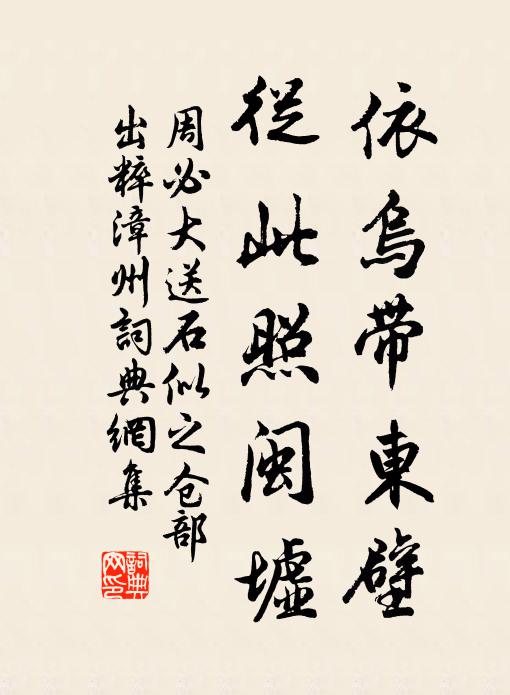 依烏帶東壁
從此照閩墟
周必大送石似之仓部
出粹漳州詞典網集
詞典网印